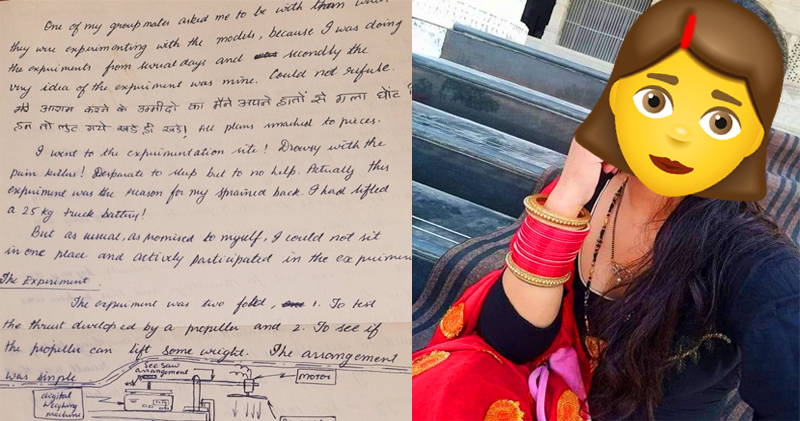 One of my groupmates asked me to be with them when
they were experimenting with the models, because I was doing
the experiments from several days and secondly the
very idea of the experiment was mine. Could not refuse.
मेरे आराम करने के उम्मीदो का मैंने अपने हातों से गला घोंट
हम तो लुट गये खडे ही खडे! All plans smashed to pieces.
I went to the experimentation site! Drowsy with the
pain killers! Desparate to sleep but to no help. Actually this
experiment was the reason for my sprained back. I had lifted
a 25 kg truck battery!
But as usual, as promised to myself, I could not sit
in one place and actively participated in the experimen
The Experiment.
The experiment was two fold, 1. To test
the thrust developed by a propeller and 2. To see if
the propeller can lift some weight. The arrangement
was simple
see saw
arrangement
motor
digital
weighing
machine